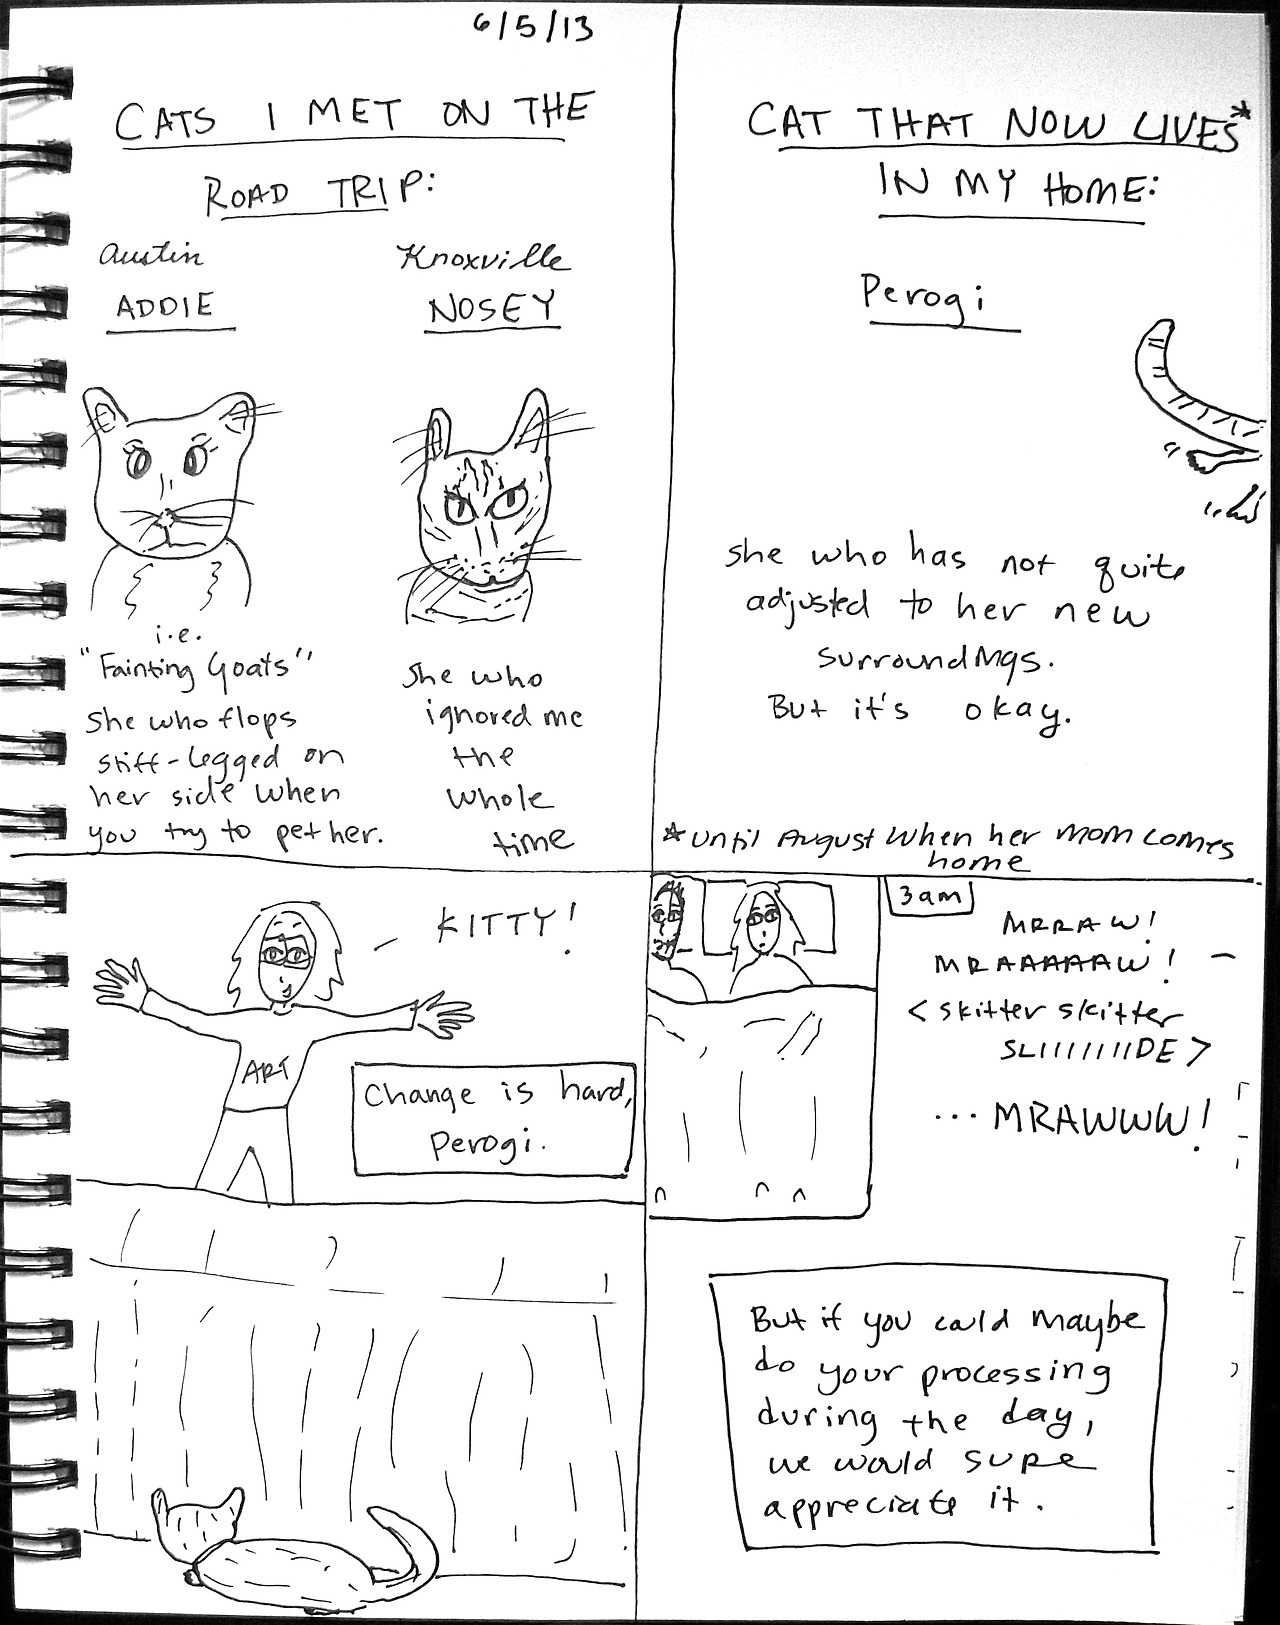 6/5/13
CATS I MET ON THE
ROAD TRIP:
Austin
ADDIE
i.e.
"Fainting Goats"
She who flops
stiff-legged on
her side when
you try to pet her.
Knoxville
NOSEY
She who
ignored me
the
whole
time
CAT THAT NOW LIVES*
IN MY HOME:
Perogi
she who has not quite
adjusted to her new
surroundings.
But it's okay.
*until August when her mom comes
home
KITTY!
ART
Change is hard,
Perogi.
3am
MRRAW!
MRAAAAAAW!
<skitter skitter
SLIIIIIIIIDE>
...MRAWWW!
But if you could maybe
do your processing
during the day,
we would sure
appreciate it.